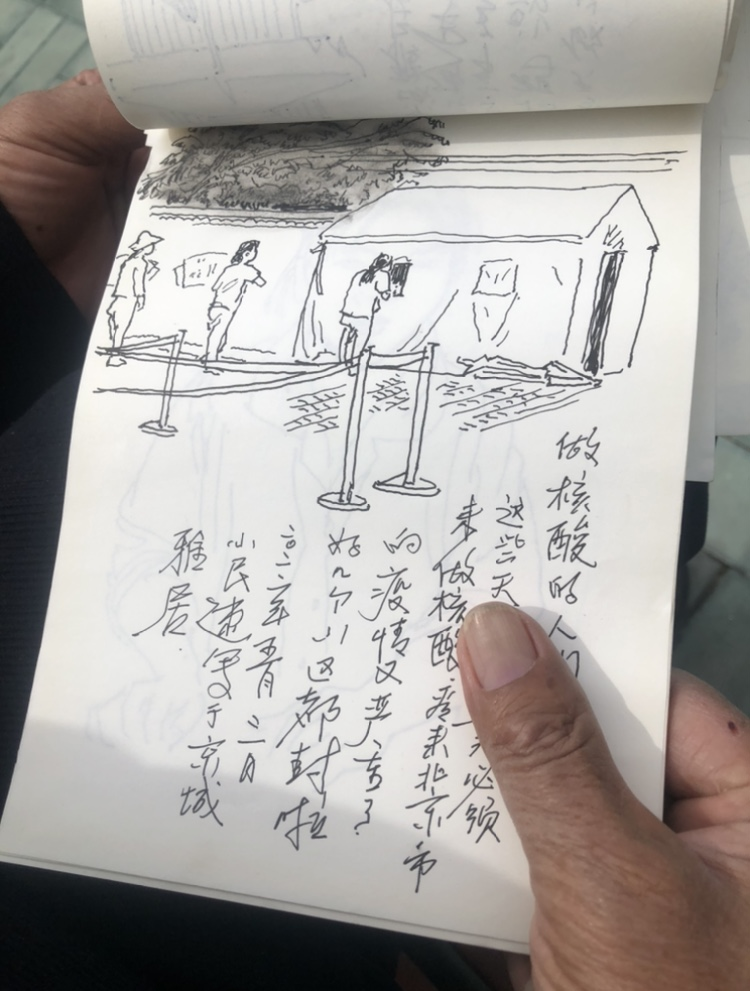 做核酸的人们
这些天 一天必须
来做核酸看来北京市
的疫情又严重了
好几个小区都封啦
二〇二二年五月 日
小民速写于京城
雅居